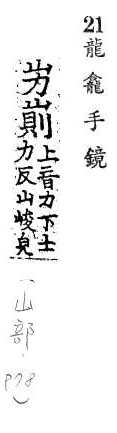 21龍龕手鏡
屴崱上音力下士
力反山峻皃
(山部. P78)